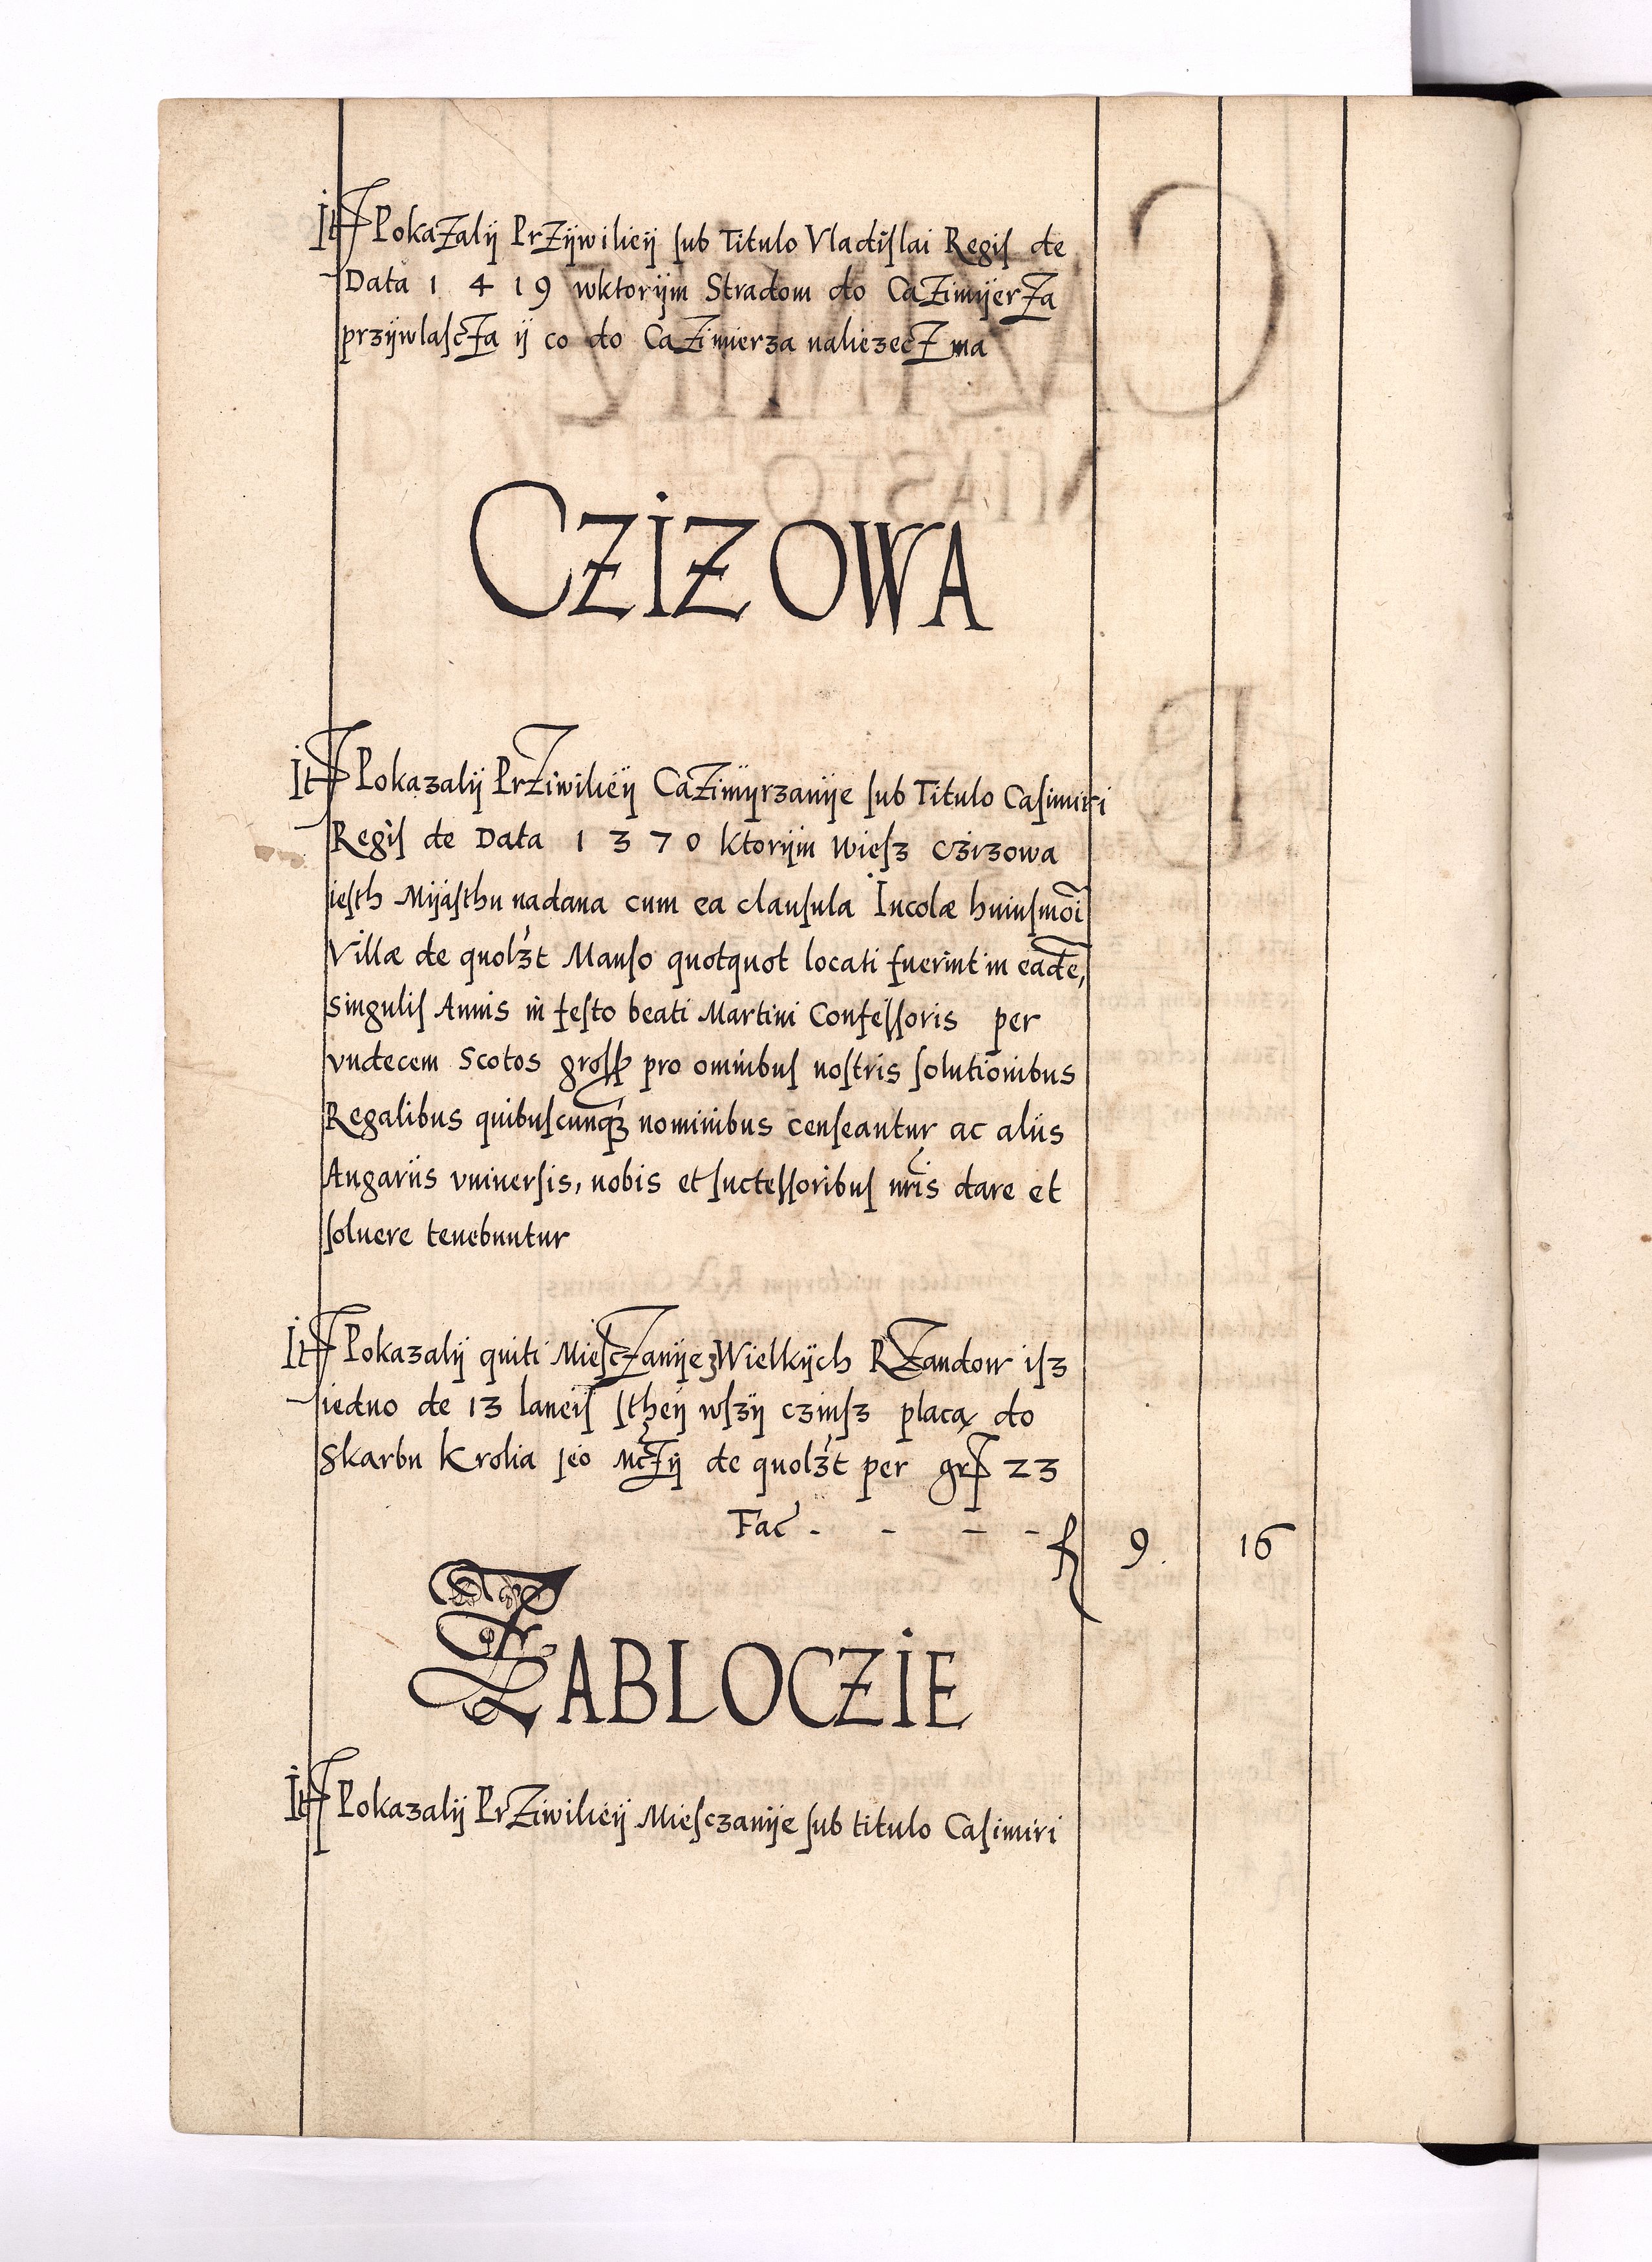 It Pokazalÿ Przÿwilieÿ sub Titulo Vladislai Regis de
Data 1 4 19 wktorÿm Stradom do Cazimÿerza
przÿwlascza ÿ co do Cazimierza naliezecz ma
CZIZOWA
It Pokazalÿ Prziwilieÿ Cazimÿrzanÿe sub Titulo Casimiri
Regis de Data 1 3 7 0 ktorÿm wiesz czizowa
iesth Mÿasthu nadana cum ea clausula Incolæ huiusmoi
Villæ de quolzt Manso quotquot locati fuerint in eade,
singulis Annis in festo beati Martini Confessoris per
vndecem Scotos gross pro omnibus nostris solutionibus
Regalibus quibuscunqz nominibus censeantur ac aliis
Angariis vniuersis, nobis et successoribus nris dare et
soluere tenebuntur
It Pokazalÿ quiti Miesczanÿe z Wielkÿch Rzandow isz
iedno de 13 laneis stheÿ wszÿ czinsz placą do
Skarbu Krolia jeo Mczÿ de quolzt per gr 23
Fac - - - - f 9 16
ZABLOCZIE
It Pokazalÿ Prziwilieÿ Miesczanÿe sub titulo Casimiri